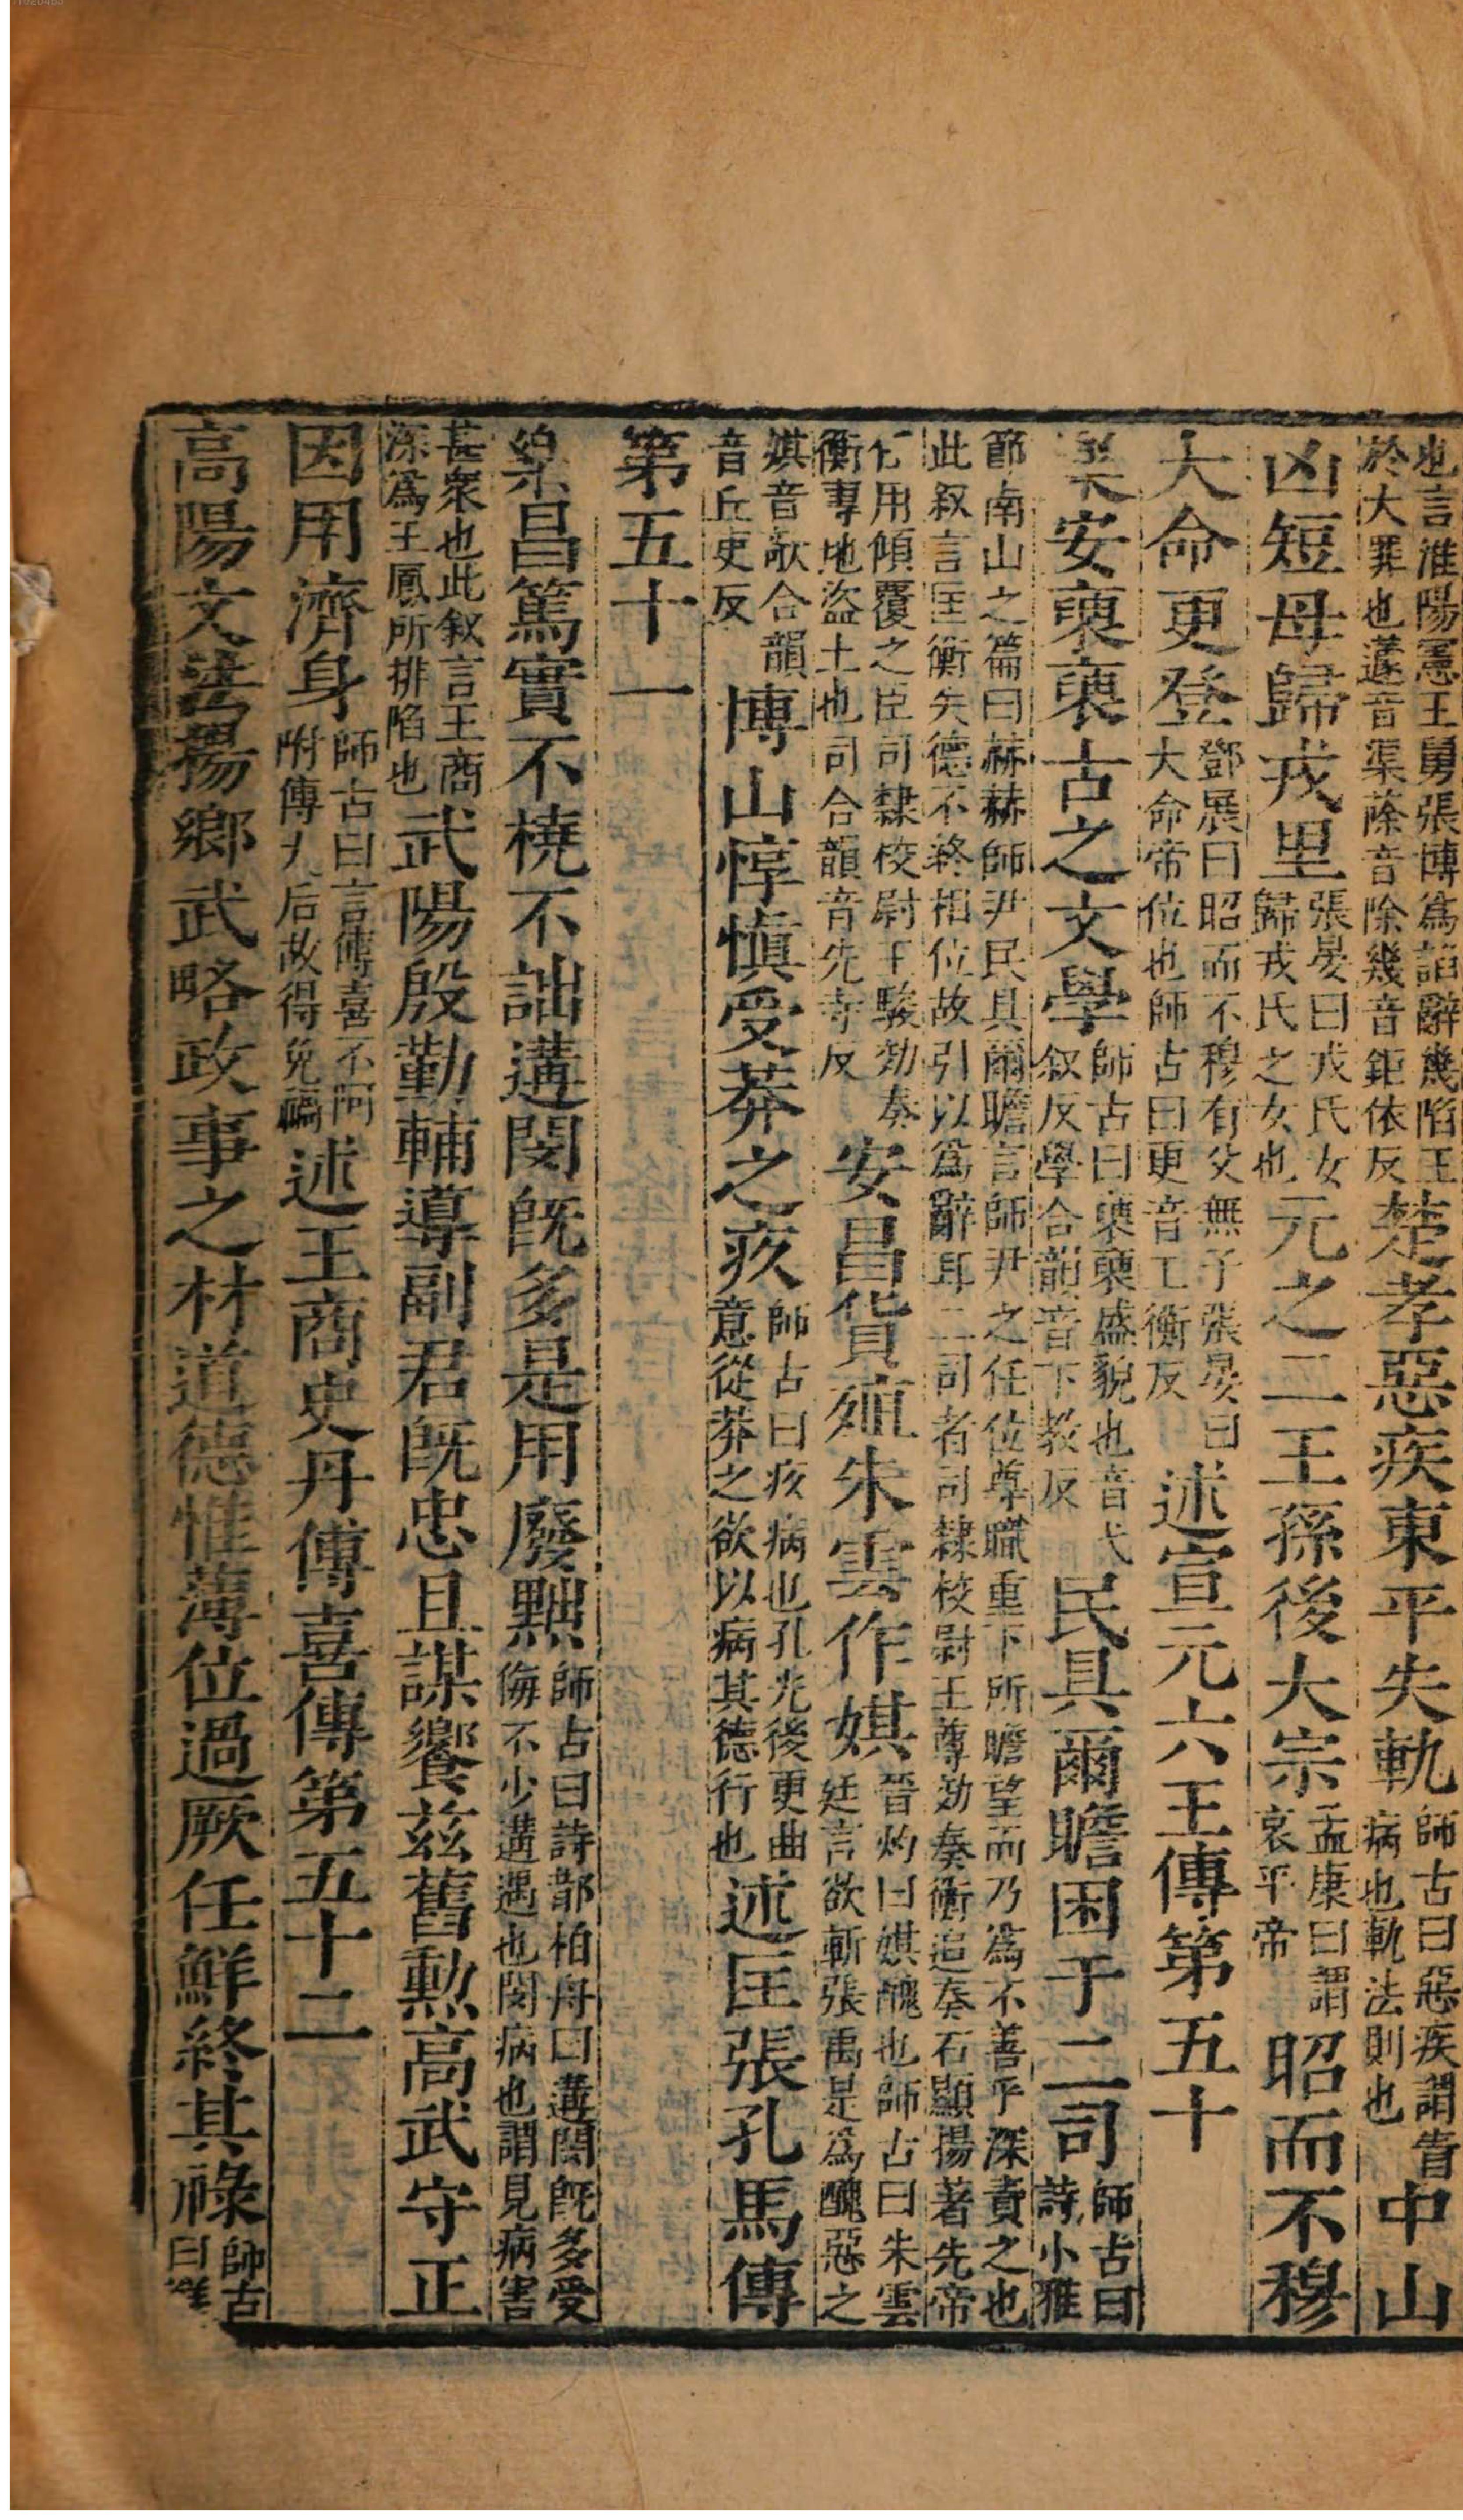 也言淮陽憲王舅張博爲諂辭幾陷王
於大罪也蘧音渠蒢音除幾音鉅依反
楚孝惡疾東平失軌
師古曰惡疾謂眚
病也軌法則也
中山
凶短母歸戎里
張晏曰戎氏女
歸戎氏之女也
元之二王孫後大宗
孟康曰謂
哀平帝
昭而不穆
大命更登
鄧展曰昭而不穆有父無子張晏曰
大命帝位也師古曰更音工衡反
述宣元六王傳第五十
樂安裒裒古之文學
師古曰裒裒盛貌也音弋
叙反學合韻音下教反
民具爾瞻困于二司
師古曰
詩小雅
節南山之篇曰赫赫師尹民具爾瞻言師尹之任位尊職重下所瞻望而乃爲不善乎深責之也
此叙言匡衡失德不終相位故引以爲辭耳二司者司隸校尉王尊劾奏衡追奏石顯揚著先帝
任用傾覆之臣司隸校尉王駿劾奏
衡專地盜土也司合韻音先寺反
安昌貨殖朱雲作娸
晉灼曰娸醜也師古曰朱雲
廷言欲斬張禹是爲醜惡之
娸音欺合韻
音丘吏反
博山惇愼受莽之疚
師古曰疚病也孔光後更曲
意從莽之欲以病其德行也
述匡張孔馬傳
第五十一
樂昌篤實不橈不詘遘閔旣多是用廢黜
師古曰詩邶柏舟曰遘閔旣多受
侮不少遘遇也閔病也謂見病害
甚衆也此叙言王商
深爲王鳳所排陷也
武陽殷勤輔導副君旣忠且謀饗茲舊勲高武守正
因用濟身
師古曰言傅喜不阿
附傅太后故得免禍
述王商史丹傅喜傳第五十二
高陽文法揚鄉武略政事之材道德惟薄位過厥任鮮終其祿
師古
曰雖